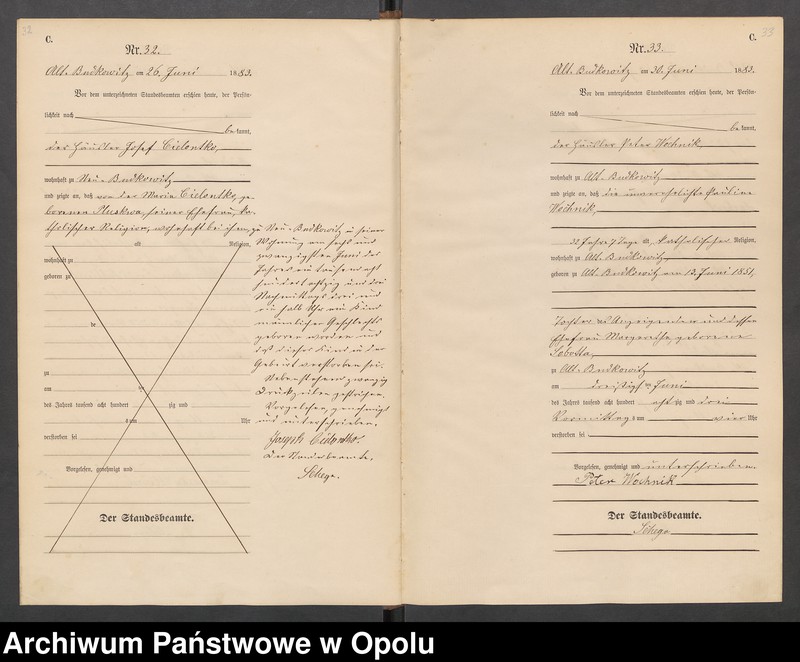 32
C.
Nr. 32.
Alt-Budkowitz am 26. Juni 1883.
Vor dem unterzeichneten Standesbeamten erschien heute, der Persön-
lichkeit nach
be kannt,
der Häusler Josef Cielontko,
wohnhaft zu Neu-Budkowitz
und zeigte an, daß von der Maria Cielontko, ge-
borenen Muskwa, seiner Ehefrau, ka-
tholischer Religion, wohnhaft bei ihm, zu Neu-Budkowitz in seiner
Wohnung am sechs und
zwanzigsten Juni des
Jahres ein tausend acht
hundert achtzig und drei
Nachmittags drei und
ein halb Uhr ein Kind
männlichen Geschlechts
geboren worden und
daß dieses Kind in der
Geburt verstorben sei.
Nebenstehend zwanzig
Druckzeilen gestrichen.
Vorgelesen, genehmigt
und unterschrieben.
Joseph Cielontko.
Der Standesbeamte.
Schega.
alt Religion,
wohnhaft zu
geboren zu
de
zu
am ten
des Jahres tausend acht hundert zig und
mittags um Uhr
verstorben sei
Vorgelesen, genehmigt und
Der Standesbeamte.
33
C.
Nr. 33.
Alt-Budkowitz am 30. Juni 1883.
Vor dem unterzeichneten Standesbeamten erschien heute, der Persön-
lichkeit nach
be kannt,
der Häusler Peter Wochnik,
wohnhaft zu Alt-Budkowitz
und zeigte an, daß die unverehelichte Pauline
Wochnik,
32 Jahre 7 Tage alt, katholischer Religion,
wohnhaft zu Alt-Budkowitz
geboren zu Alt-Budkowitz am 13. Juni 1851,
Tochter des Anzeigenden und dessen
Ehefrau Margarethe, geborenen
Sobotta,
zu Alt-Budkowitz
am dreißigsten Juni
des Jahres tausend acht hundert acht zig und drei
Vormittags um vier Uhr
verstorben sei
Vorgelesen, genehmigt und unterschrieben
Peter Wochnik
Der Standesbeamte.
Schega
Archiwum Państwowe w Opolu